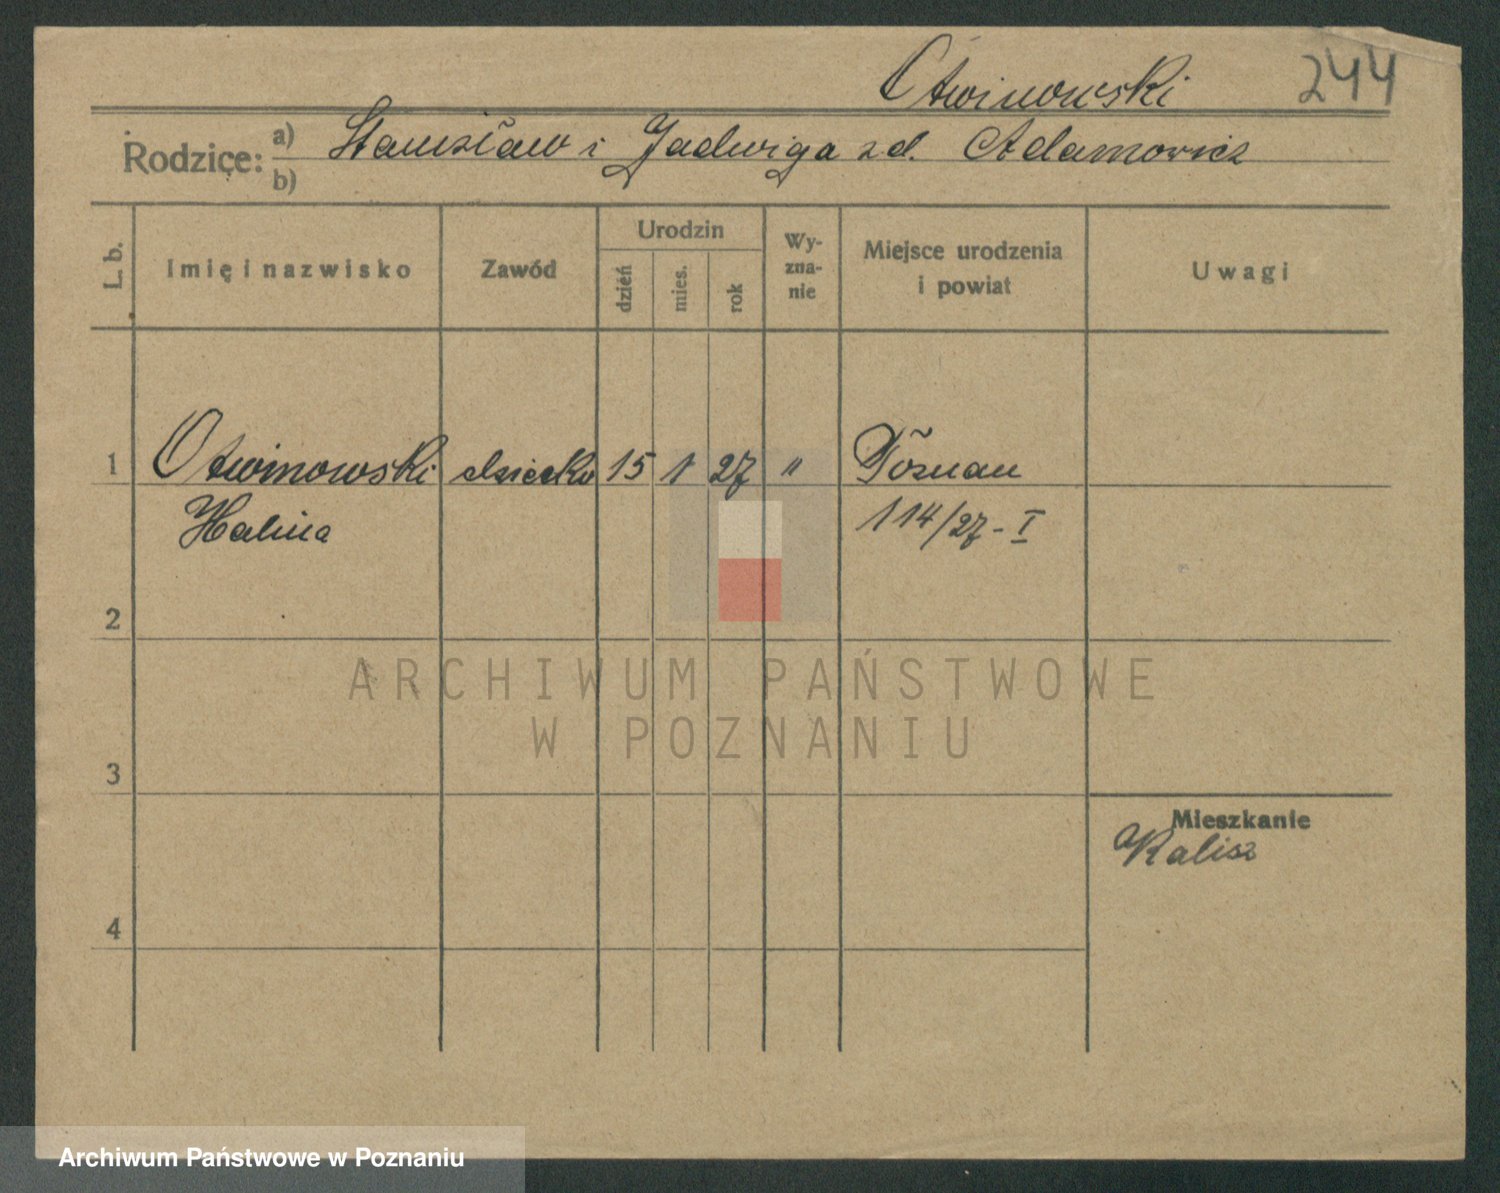 Otwinowski 244
Rodzice: a) Stanisław i Jadwiga zd. Adamowicz
b)
L. b. Imię i nazwisko Zawód Urodzin dzień mies. rok Wyzna-nie Miejsce urodzenia i powiat Uwagi
1 Otwinowski dziecko 15 1 27 " Poznan
Halina 114/27-I
2
3
Mieszkanie
Kalisz
4
ARCHIWUM PAŃSTWOWE
W POZNANIU
Archiwum Państwowe w Poznaniu